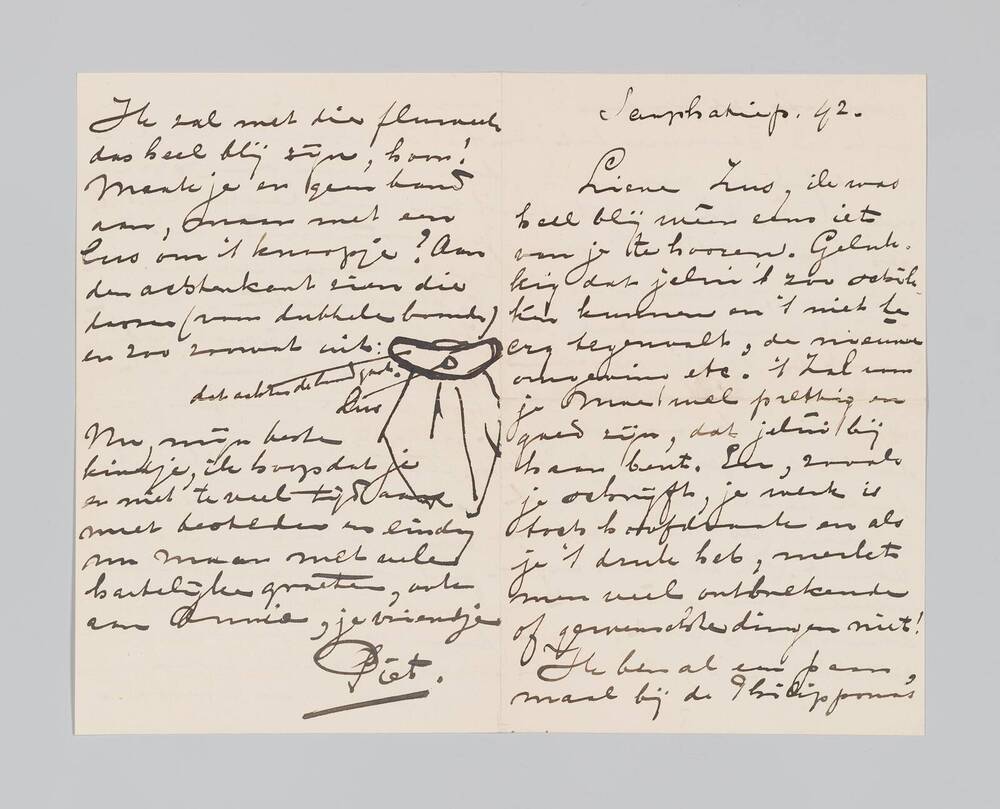 Sarphatiep. 42.
Lieve Zus, ik was
heel blij weer eens iets
van je te hooren. Geluk-
kig dat jelui 't zoo schik-
ken kunnen en 't niet te
erg tegenvalt, de nieuwe
omgeving etc. 't Zal voor
je Moe wel prettig en
goed zijn, dat jelui bij
haar bent. En, zooals
je schrijft, je werk is
toch hoofdzaak en als
je 't druk heb, merkt
men veel ontbrekende
of gewenschte dingen niet!
Ik ben al een paar
maal bij de Philippona's
Ik zal met die fluweele
das heel blij zijn, hoor!
Maak je er geen band
aan, maar met een
lus om 't knoopje? Aan
den achterkant zien die
dassen (van dubbele breede)
er zoo zoowat uit:
dat achter de band gaat.
Lus
Nu, mijn beste
kindje, ik hoop dat je
er niet te veel tijd aan
moet besteden en eindig
nu maar met vele
hartelijke groeten, ook
aan Annie, je vriendje
Piet.